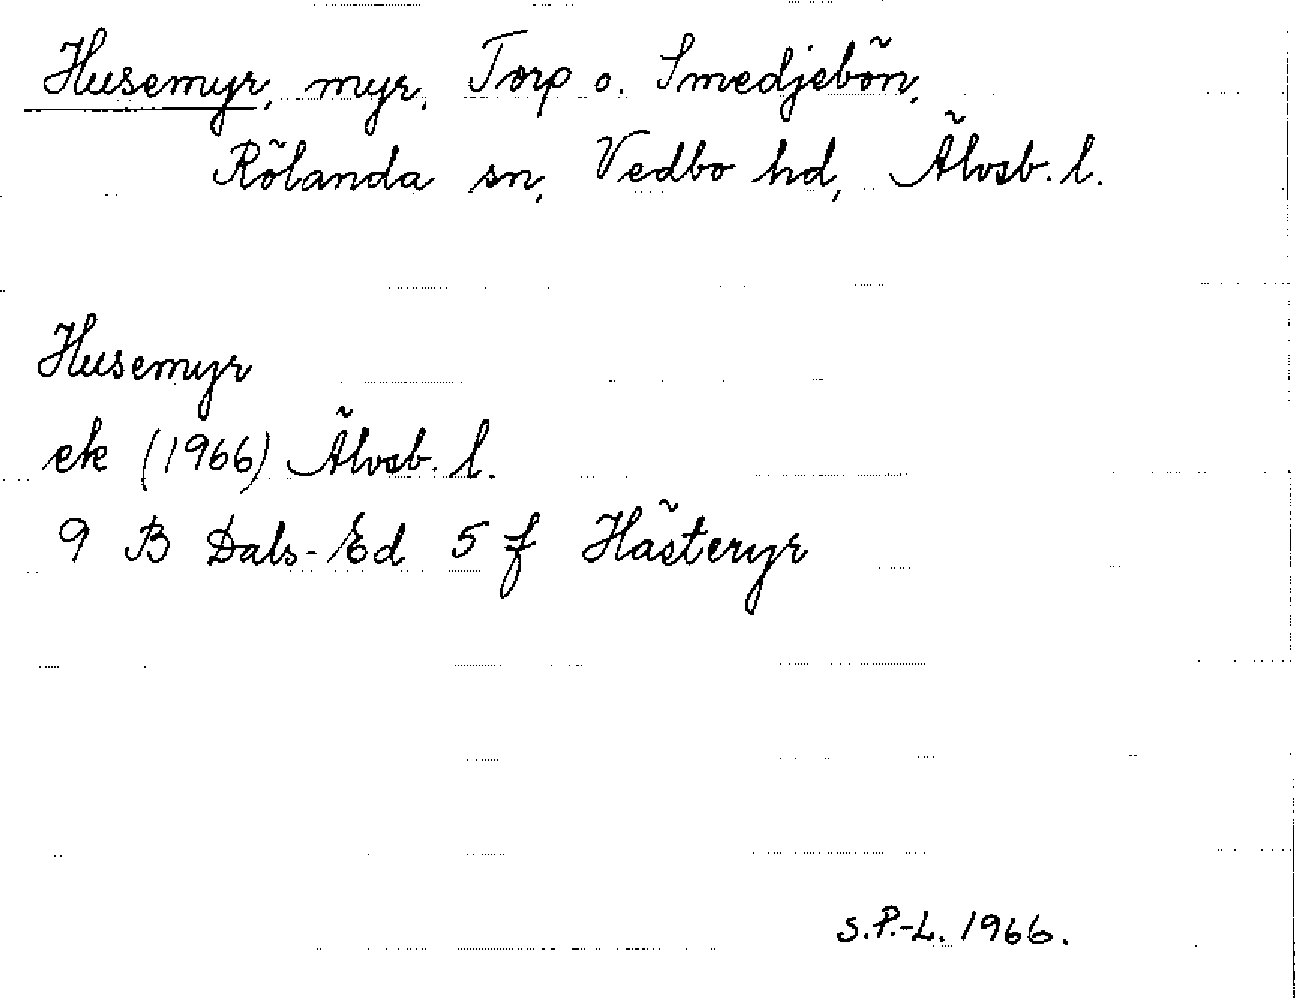 Husemyr, myr, Torp o. Smedjebön,
Rölanda sn, Vedbo hd, Älvsb. l.
Husemyr
ek (1966) Älvsb. l.
9 B Dals-Ed 5 f Hästeryr
S.P.-L. 1966.